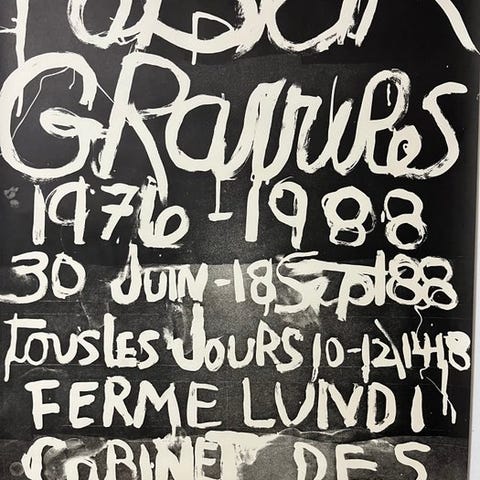 GRAVURES
1976-1988
30 JUIN-18 Sept 88
tous LES JOURS 10-12/14-18
FERME LUNDI
CABINET DES